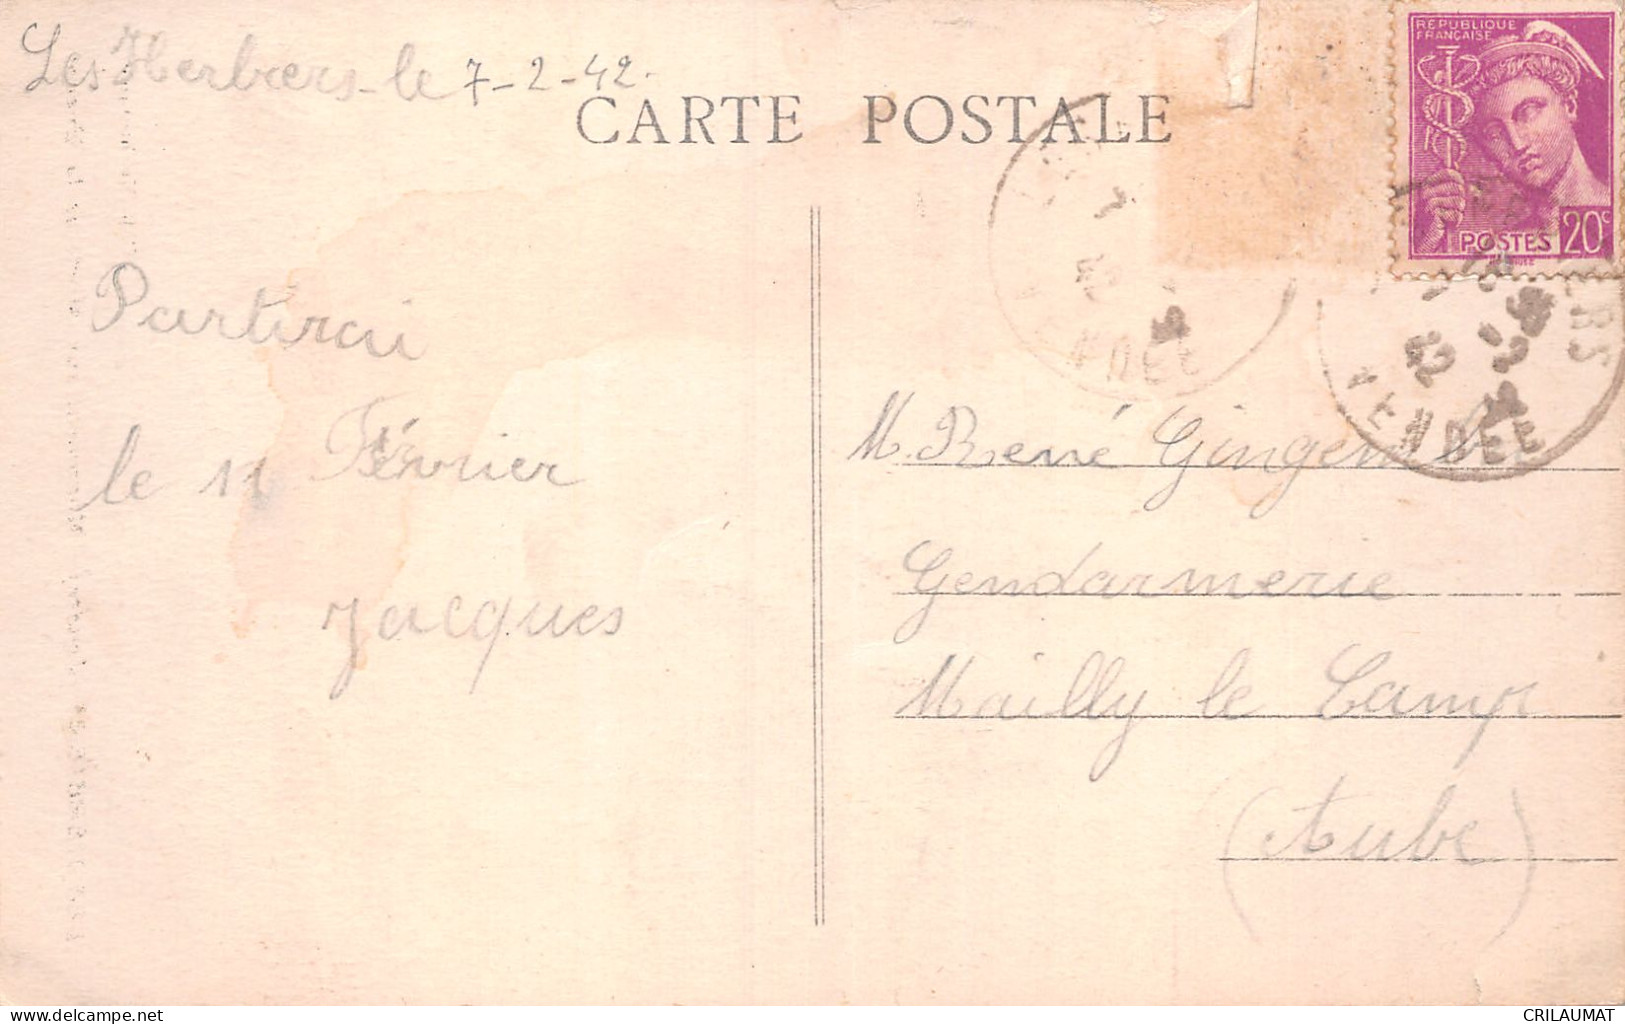 Les Herbiers - le 7-2-42.
CARTE POSTALE
REPUBLIQUE
FRANÇAISE
POSTES 20c
VENDEE
42
VENDEE
Partirai
le 11 Février
Jacques
M. René
Gendarmerie
Mailly le Camp
(Aube)
www.delcampe.net
CRILAUMAT